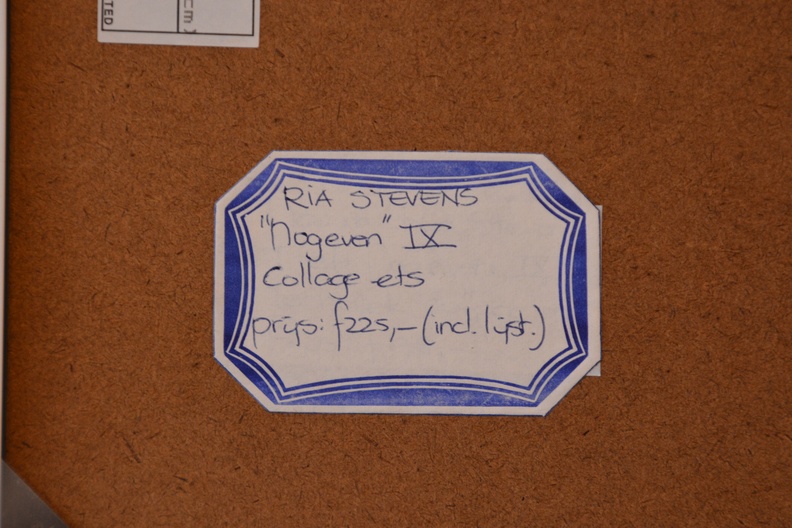 TED
cm)
RIA STEVENS
"Nogeven" IX
Collage ets
prijs: f225,- (incl. lijst.)